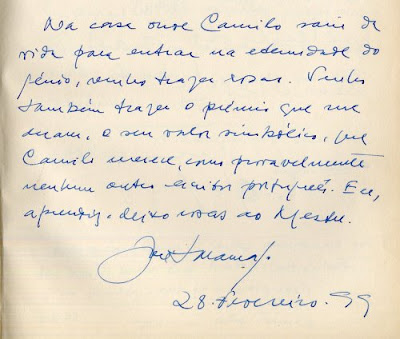 Na casa onde Camilo saiu da
vida para entrar na eternidade do
génio, venho trazer rosas. Venho
também trazer o prémio que me
deram, o seu valor simbólico, que
Camilo merece, como provavelmente
nenhum outro escritor português. Eu,
aprendiz, deixo rosas ao Mestre.
José Saramago
28. Fevereiro. 99